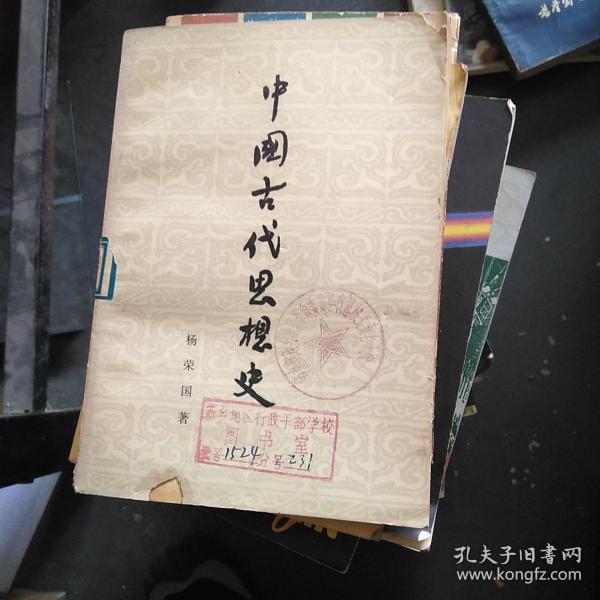 中國古代思想史
杨荣国著
新乡地区行政干部学校
图书室
登号1524分号231
孔夫子旧书网
www.kongfz.com